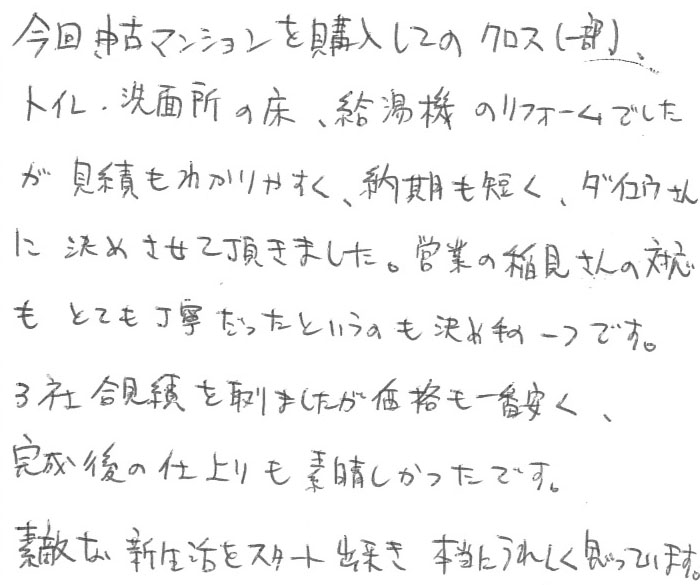 今回中古マンションを購入しての クロス(一部)、
トイレ・洗面所の床、給湯機のリフォームでした
が 見積もわかりやすく、納期も短く、ダイコウさん
に 決めさせて頂きました。営業の稲見さんの対応
も とても丁寧だったというのも決め手の一つです。
3社合見積を取りましたが価格も一番安く、
完成後の仕上りも素晴しかったです。
素敵な新生活をスタート出来き 本当にうれしく思っています。